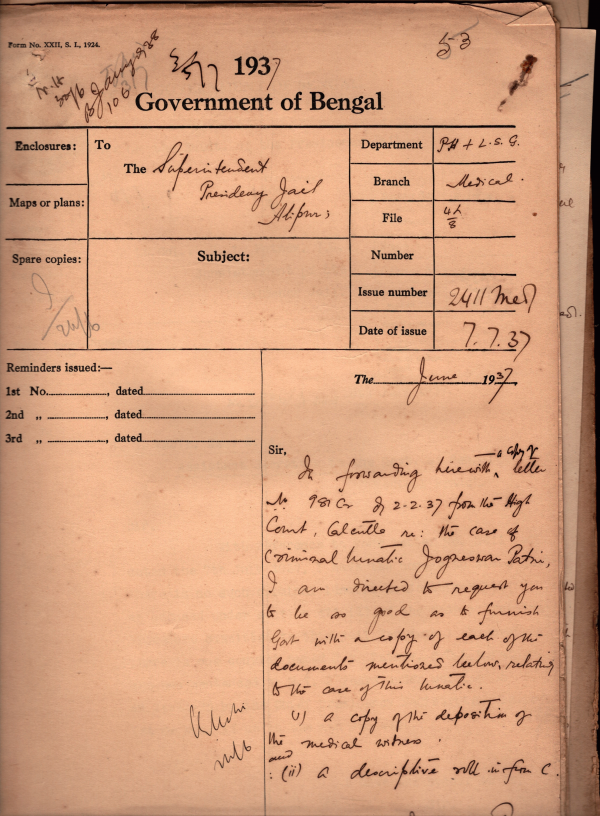 Form No. XXII, S. I., 1924.
53
1937
Government of Bengal
Enclosures:
To
The Superintendent
Presidency Jail
Alipur;
Maps or plans:
Spare copies:
Subject:
Department PH + L.S.G.
Branch Medical.
File
Number
Issue number 2411 Med
Date of issue 7.7.37
Reminders issued:—
1st No. , dated
2nd „ , dated
3rd „ , dated
The June 1937
Sir,
In forwarding herewith a copy of letter
No 981 Cr of 2-2-37 from the High
Court, Calcutta re: the case of
Criminal lunatic Jogneswar Patni,
I am directed to request you
to be so good as to furnish
Govt with a copy of each of the
documents mentioned below, relating
to the case of this lunatic.
(i) a copy of the deposition of
the medical witness.
and
: (ii) a descriptive roll in form C.